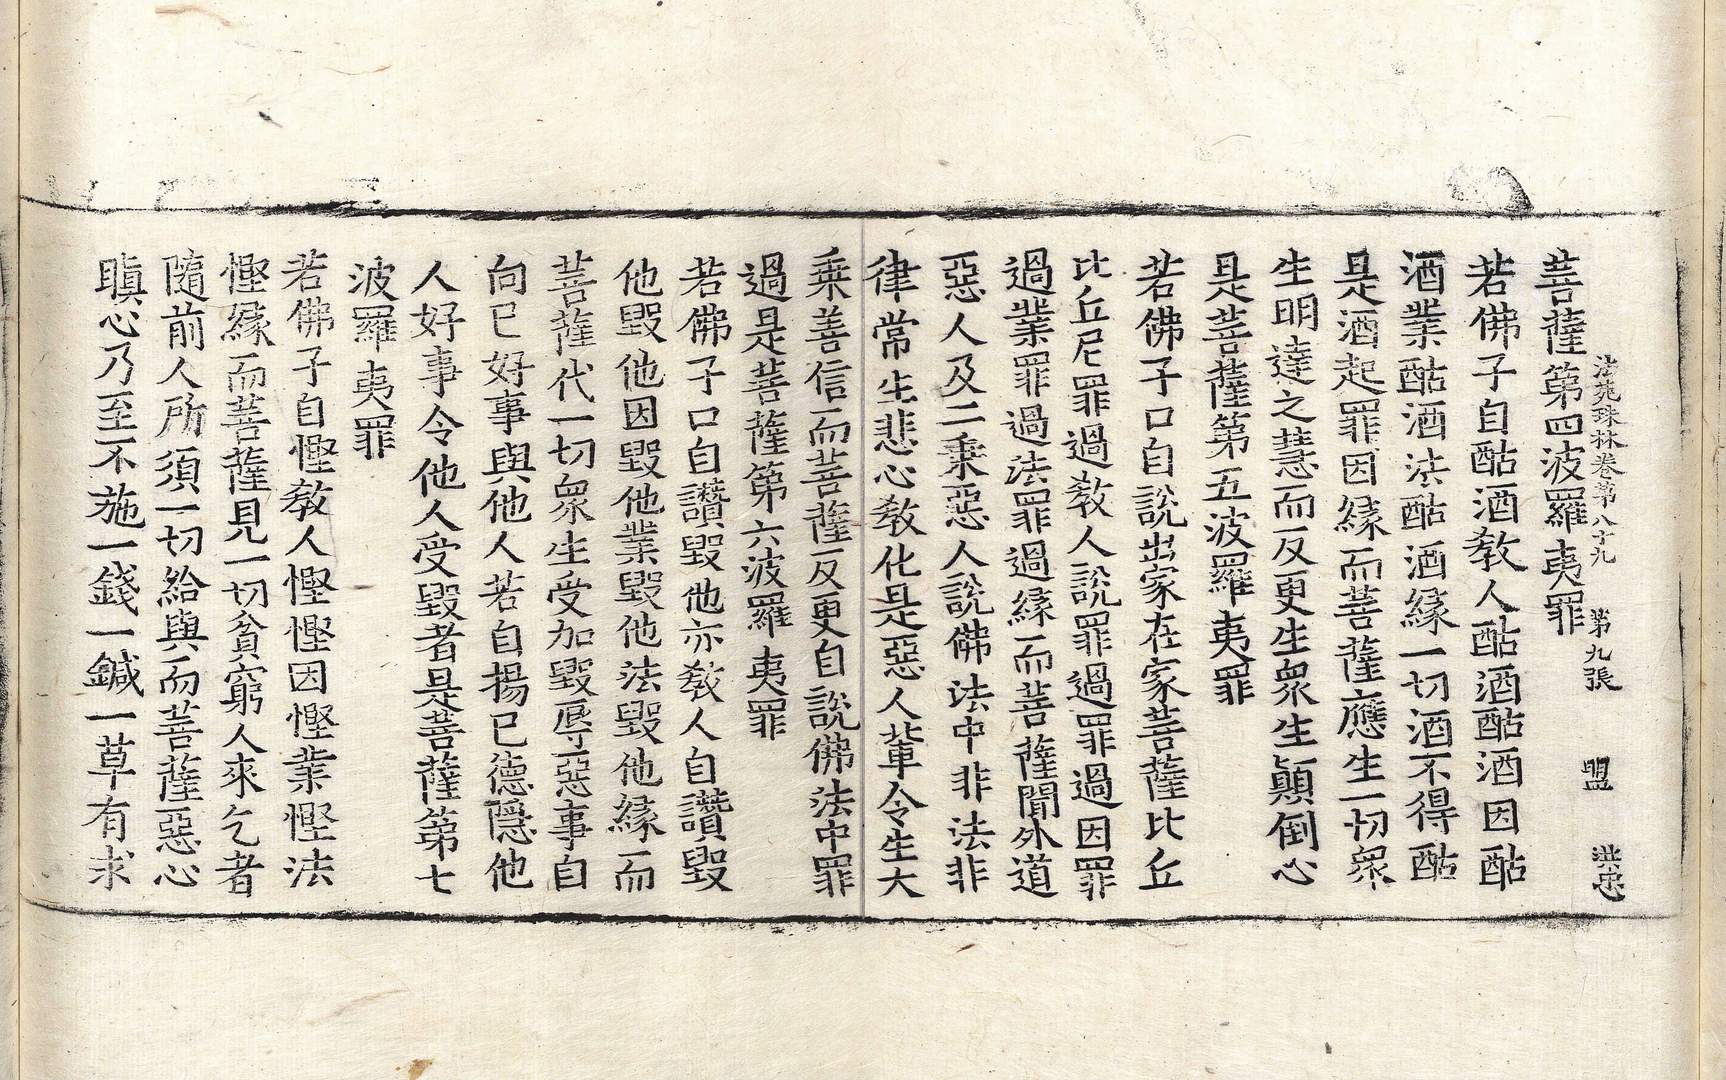 法苑珠林卷第八十九 第九張 盟 洪忠
菩薩第四波羅夷罪
若佛子自酤酒教人酤酒酤酒因酤
酒業酤酒酒法酤酒緣一切酒不得酤
是酒起罪因緣而菩薩應生一切眾
生明達之慧而反更生眾生顛倒心
是菩薩第五波羅夷罪
若佛子口自說出家在家菩薩比丘
比丘尼罪過教人說罪過罪過因罪
過業罪過法罪過緣而菩薩聞外道
惡人及二乘惡人說佛法中非法非
律常生悲心教化是惡人輩令生大
乘善信而菩薩反更自說佛法中罪
過是菩薩第六波羅夷罪
若佛子口自讚毀他亦教人自讚毀
他毀他因毀他業毀他法毀他緣而
菩薩代一切眾生受加毀辱惡事自
向已好事與他人若自揚已德隱他
人好事令他人受毀者是菩薩第七
波羅夷罪
若佛子自慳教人慳慳因慳業慳法
慳緣而菩薩見一切貧窮人來乞者
隨前人所須一切給與而菩薩惡心
瞋心乃至不施一錢一鍼一草有求